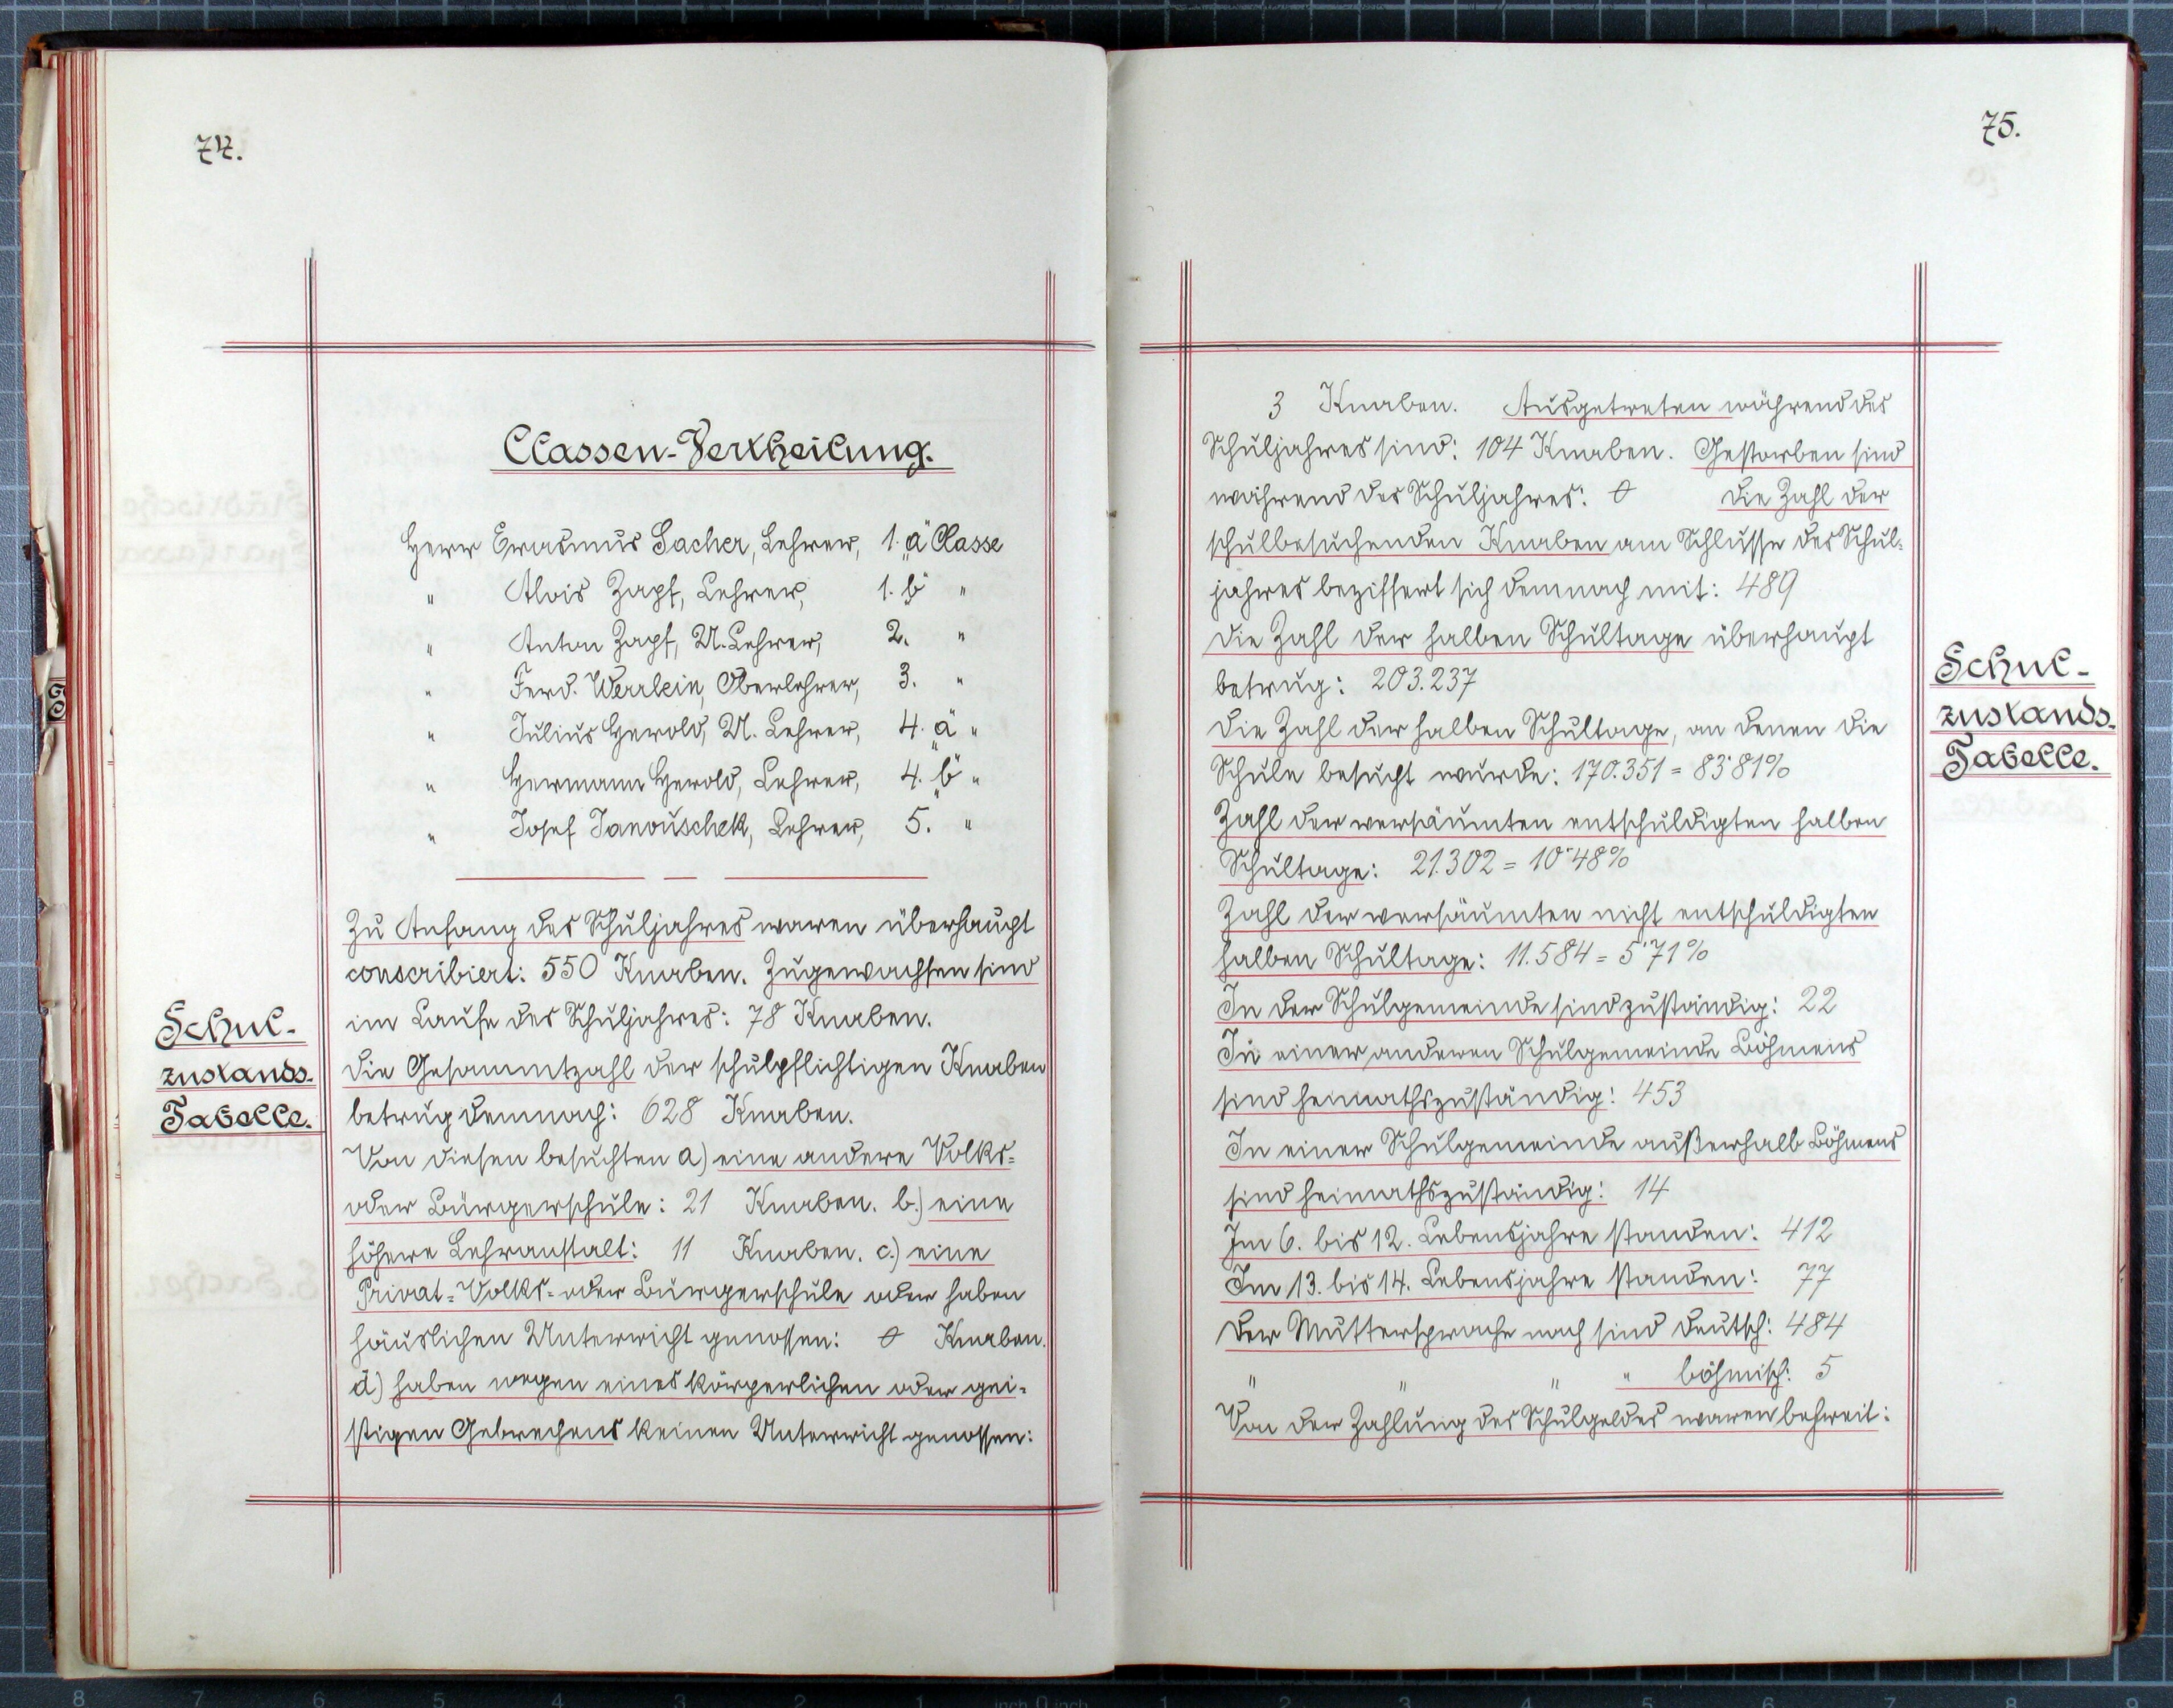 74.
Classen-Vertheilung.
Herr Erasmus Sacher, Lehrer, 1. „a“ Classe
„ Alois Zapf, Lehrer, 1. „b“ „
„ Anton Zapf, U. Lehrer, 2. „
„ Ferd. Werrlein, Oberlehrer, 3. „
„ Julius Herold, U. Lehrer, 4. „a“ „
„ Hermann Herold, Lehrer, 4. „b“ „
„ Josef Janouschek, Lehrer, 5. „
Schul-
zustands-
Tabelle.
Zu Anfang des Schuljahres waren überhaupt
conscribiert: 550 Knaben. Zugewachsen sind
im Laufe des Schuljahres: 78 Knaben.
Die Gesammtzahl der schulpflichtigen Knaben
betrug demnach: 628 Knaben.
Von diesen besuchten a) eine andere Volks-
oder Bürgerschule: 21 Knaben. b.) eine
höhere Lehranstalt: 11 Knaben. c.) eine
Privat-Volks- oder Bürgerschule oder haben
häuslichen Unterricht genossen: 0 Knaben.
d) haben wegen eines körperlichen oder gei-
stigen Gebrechens keinen Unterricht genossen:
75.
3 Knaben. Ausgetreten während des
Schuljahres sind: 104 Knaben. Gestorben sind
während des Schuljahres: 0 Die Zahl der
schulbesuchenden Knaben am Schlusse des Schul-
jahres beziffert sich demnach mit: 489
Die Zahl der halben Schultage überhaupt
betrug: 203.237
Die Zahl der halben Schultage, an denen die
Schule besucht wurde: 170.351 = 83·81%
Zahl der versäumten entschuldigten halben
Schultage: 21.302 = 10·48%
Zahl der versäumten nicht entschuldigten
halben Schultage: 11.584 = 5·71%
In der Schulgemeinde sind zuständig: 22
In einer anderen Schulgemeinde Böhmens
sind heimathszuständig: 453
In einer Schulgemeinde außerhalb Böhmens
sind heimathszuständig: 14
Im 6. bis 12. Lebensjahre standen: 412
Im 13. bis 14. Lebensjahre standen: 77
Der Muttersprache nach sind deutsch: 484
„ „ „ „ böhmisch: 5
Von der Zahlung des Schulgeldes waren befreit:
Schul-
zustands-
Tabelle.